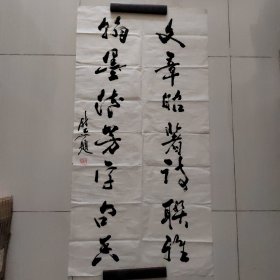 文章昭著诗联雅
翰墨清芳字
题